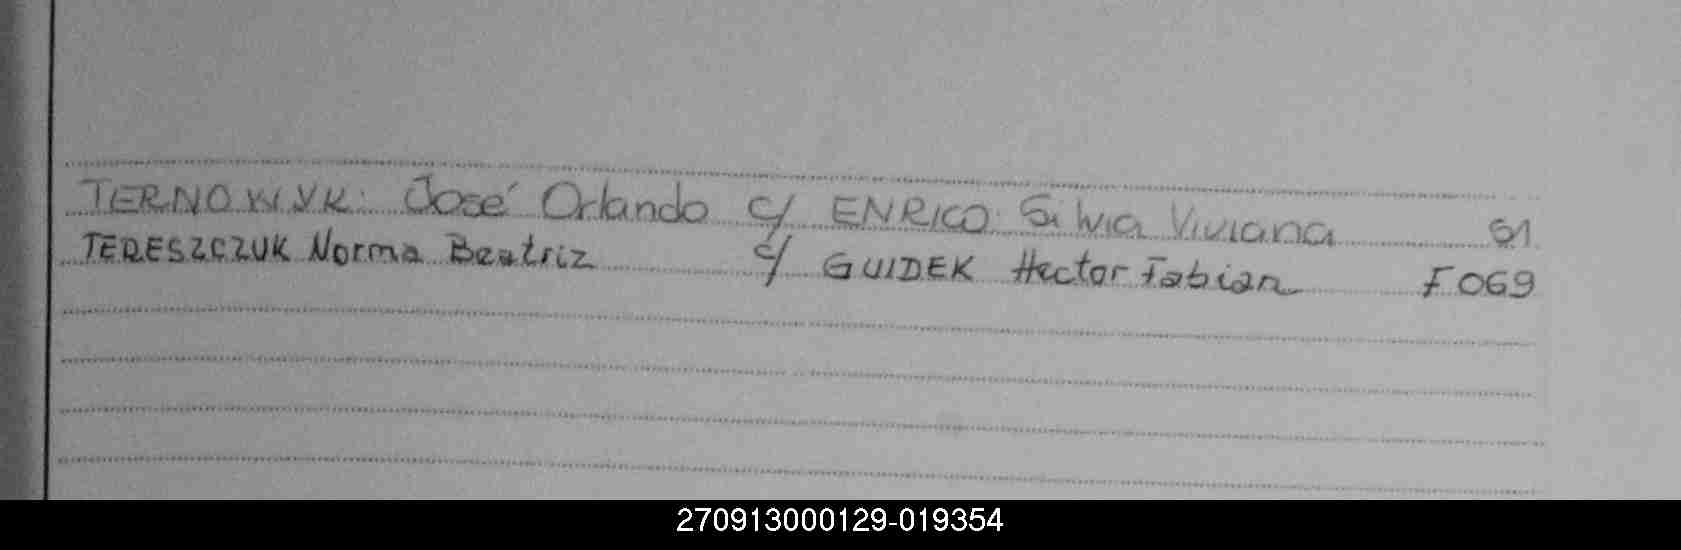 TERNOWYK: José Orlando c/ ENRICO: Silvia Viviana 61
TERESZCZUK Norma Beatriz c/ GUIDEK Hector Fabian F 069
270913000129-019354